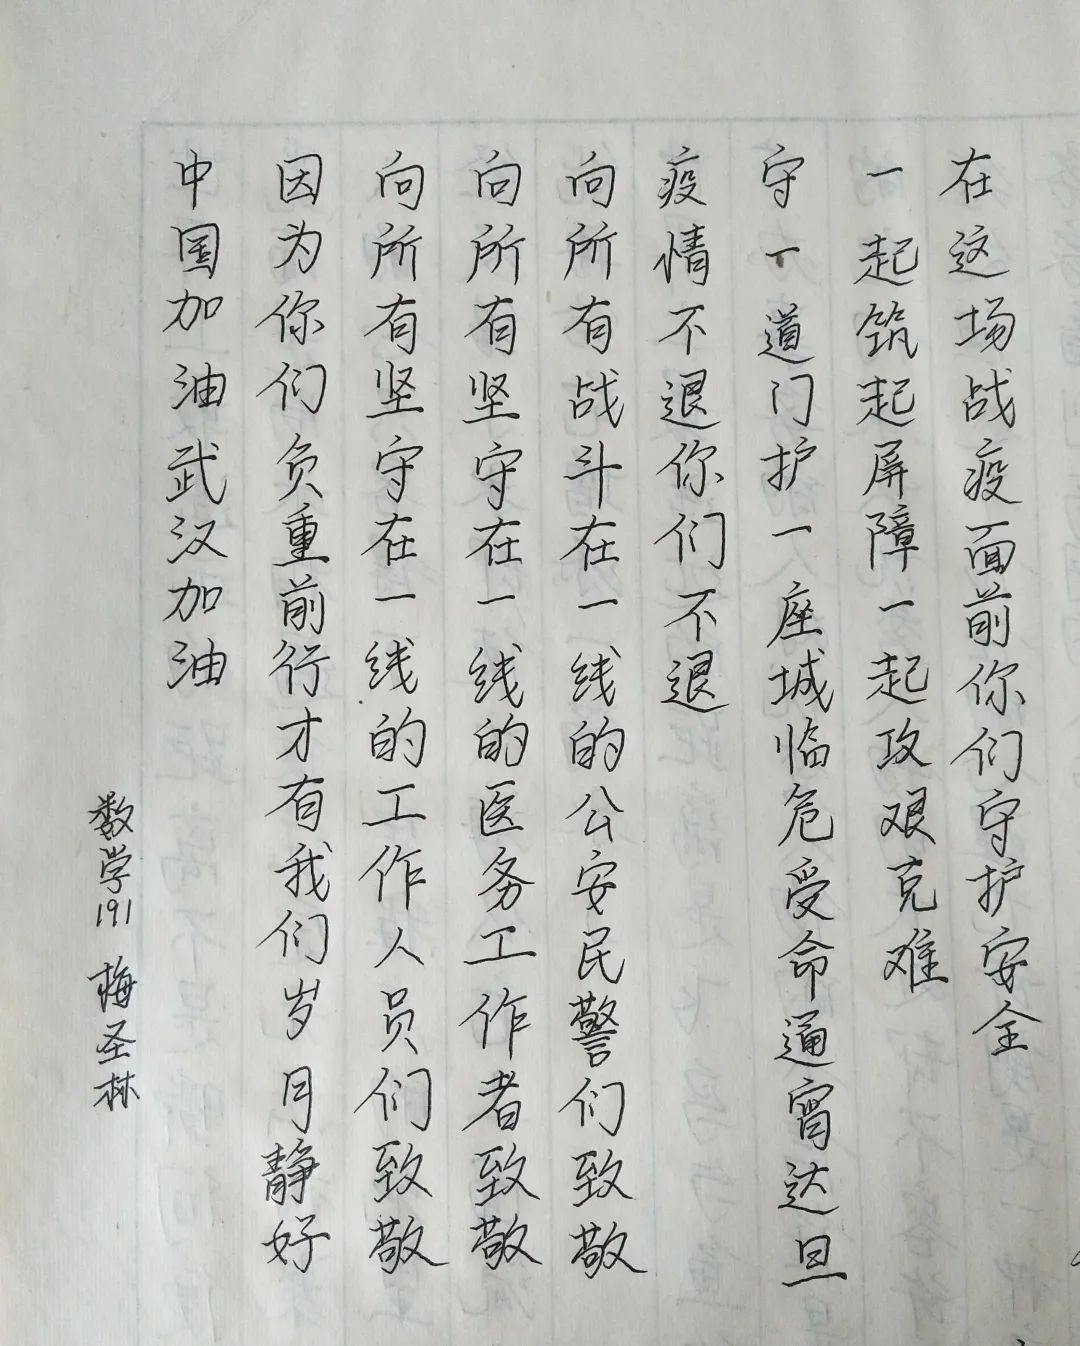 在这场战疫面前你们守护安全
一起筑起屏障一起攻艰克难
守一道门护一座城临危受命通宵达旦
疫情不退你们不退
向所有战斗在一线的公安民警们致敬
向所有坚守在一线的医务工作者致敬
向所有坚守在一线的工作人员们致敬
因为你们负重前行才有我们岁月静好
中国加油武汉加油
数学191 梅圣林